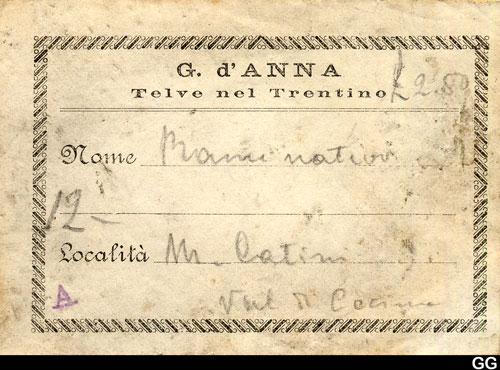 G. d'ANNA
Telve nel Trentino
£ 2.50
Nome Rame nativo
12-
Località M. Catini
Val di Cecina
A
GG